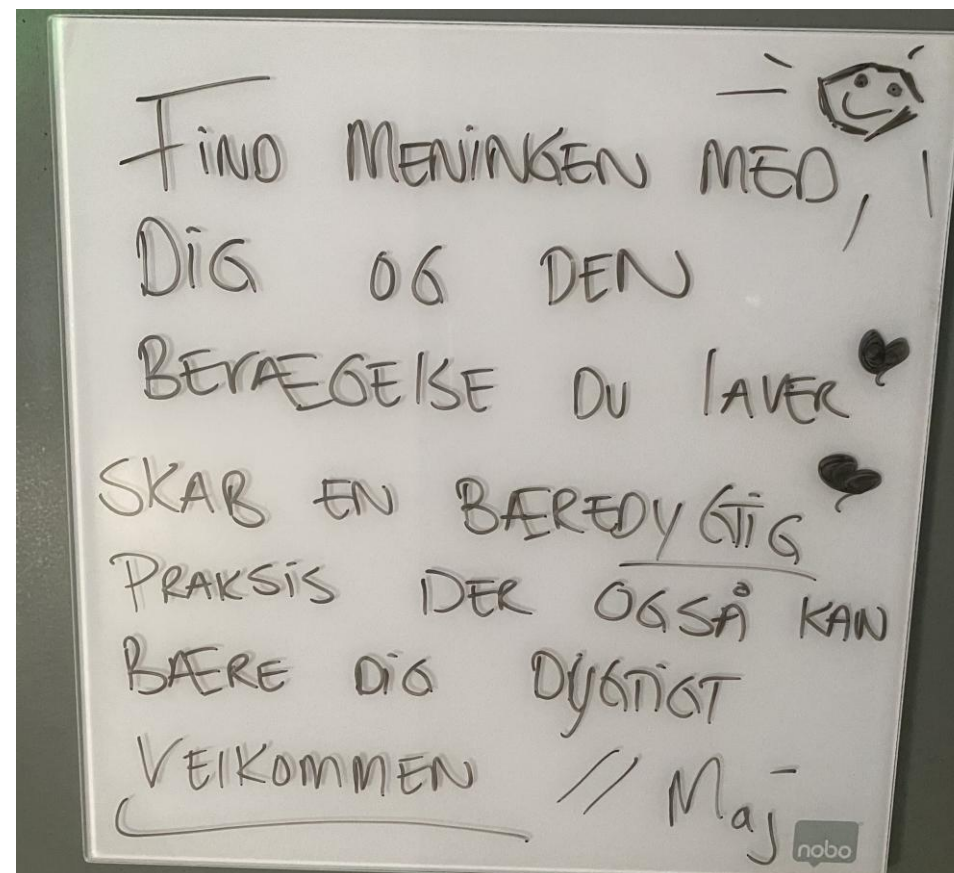 FIND MENINGEN MED,
DIG OG DEN
BEVÆGELSE DU LAVER
SKAB EN BÆREDYGTIG
PRAKSIS DER OGSÅ KAN
BÆRE DIG DYGTIGT
VELKOMMEN // Maj
nobo